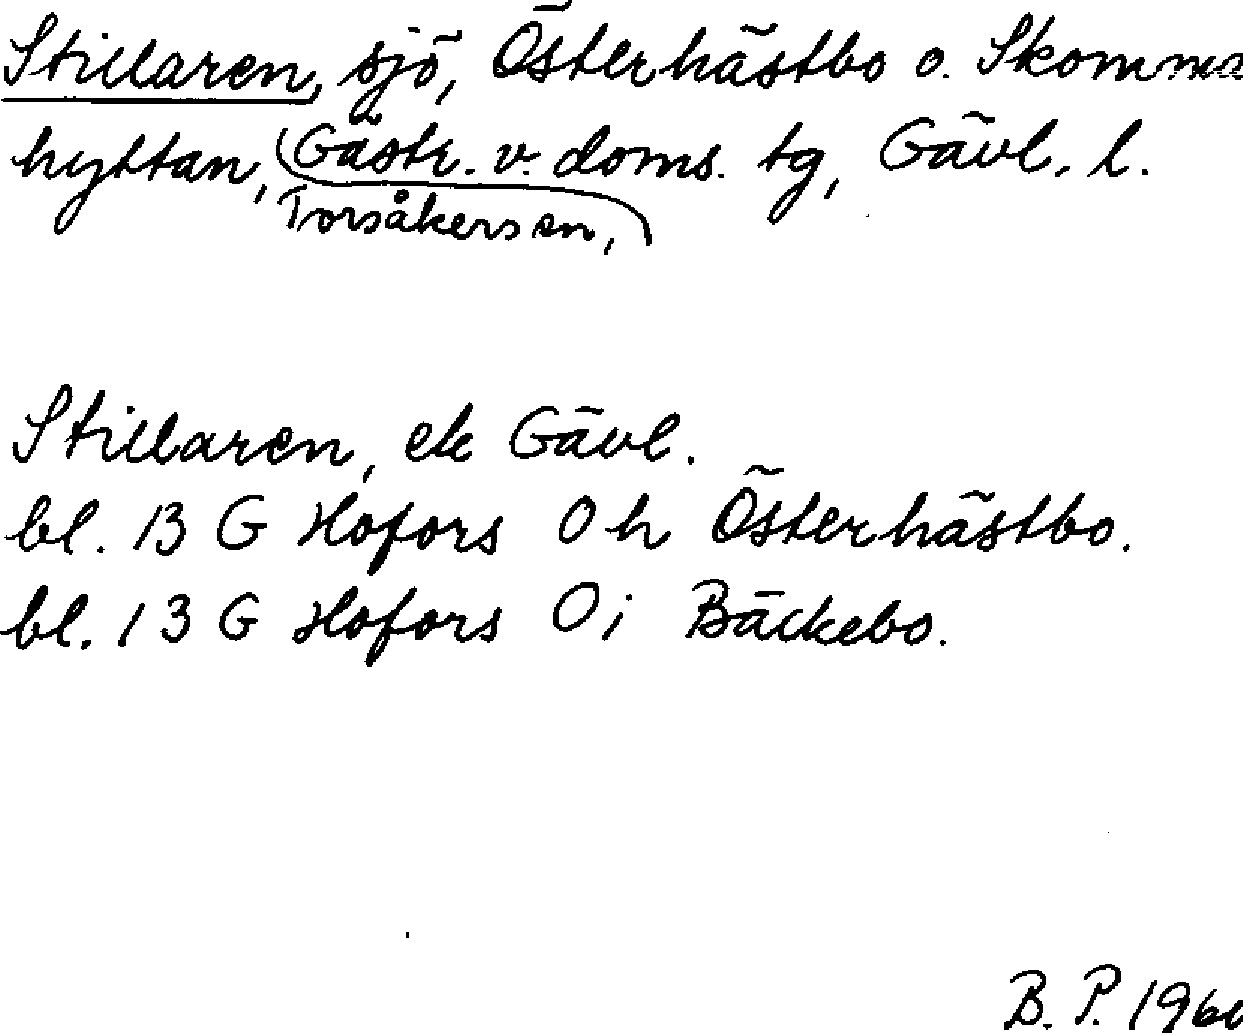 Stillaren, sjö, Österhästbo o. Skomma
hyttan, Gästr. v. doms. tg, Gävl. l.
Torsåkers sn,
Stillaren, ek Gävl.
bl. 13 G Hofors 0 h Österhästbo.
bl. 13 G Hofors 0 i Bäckebo.
B. P.